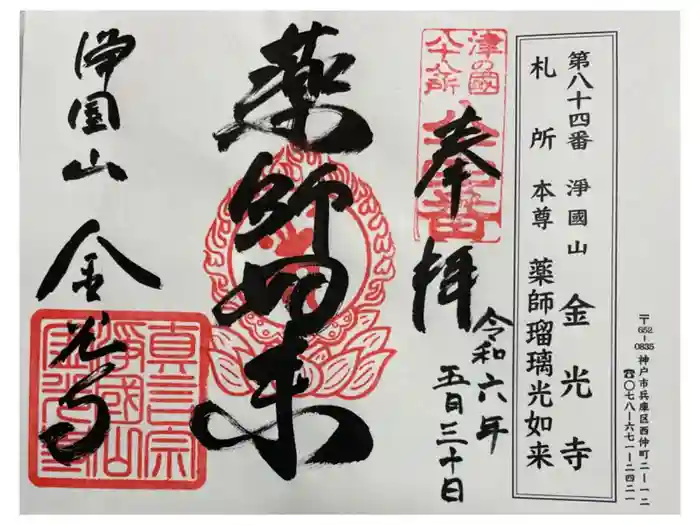 〒652-0835 神戸市兵庫区西仲町二ー一二
☎〇七八ー六七一ー二四二一
第八十四番 淨國山 金光寺
札所本尊 薬師瑠璃光如来
津の國
八十八所
奉拝
令和六年
五月三十日
薬師如来
淨國山 金光寺
真言宗
淨國山
金光寺